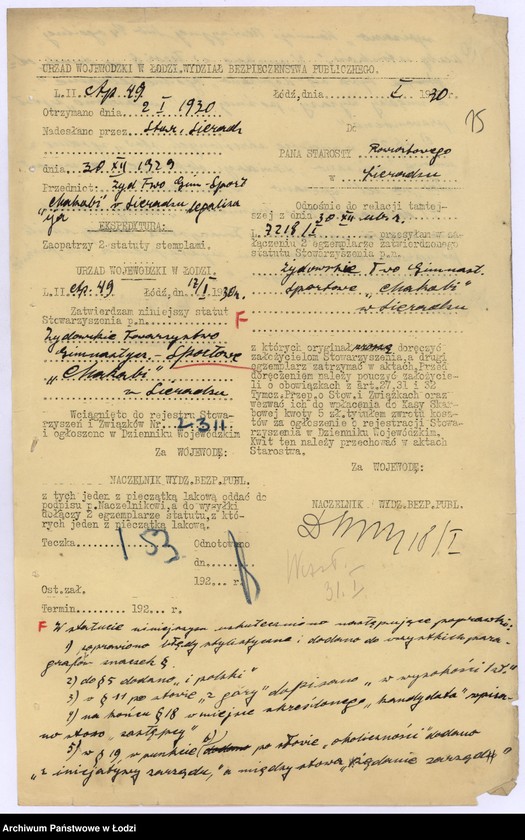 URZĄD WOJEWÓDZKI W ŁODZI. WYDZIAŁ BEZPIECZEŃSTWA PUBLICZNEGO.
L.II Ap. 49
Otrzymano dnia 2 I 1930
Nadesłano przez Star. Sieradz
dnia 30 XII 1929
Przedmiot: Żyd Two Gim-Sport
"Makabi" w Sieradzu legaliza
cja
EKSPEDYTURA:
Zaopatrzy 2 statuty stemplami.
URZĄD WOJEWÓDZKI W ŁODZI.
L.II Ap. 49 Łódź, d. 17/I 1930 r.
Zatwierdzam niniejszy statut
Stowarzyszenia p.n.
Żydowskie Towarzystwo
Gimnastycz.- Sportowe
"Makabi"
w Sieradzu
Wciągnięto do rejestru Stowa-
rzyszeń i Związków Nr. 2311
i ogłoszono w Dzienniku Wojewódzkim
Za WOJEWODĘ:
NACZELNIK WYDZ. BEZP. PUBL.
z tych jeden z pieczątką lakową oddać do
podpisu p. Naczelnikowi, a do wysyłki
dołączy 2 egzemplarze statutu, z któ-
rych jeden z pieczątką lakową.
Teczka 153 Odnotowano
dn.
192 .. r.
Ost. zał.
Termin 192 ... r.
Łódź, dnia I 1930 r.
15
Do
PANA STAROSTY Powiatowego
w Sieradzu
Odnośnie do relacji tamtej-
szej z dnia 30 XII ub r.
L. 7218/I przesyłam w za-
łączeniu 2 egzemplarze zatwierdzonego
statutu Stowarzyszenia p.n.
Żydowskie T-wo Gimnast.
Sportowe "Makabi"
w Sieradzu
F
z których oryginał doręczyć
założycielom Stowarzyszenia, a drugi
egzemplarz zatrzymać w aktach. Przed
doręczeniem należy pouczyć założycie-
li o obowiązkach z art. 27, 31 i 32
Tymcz. Przep. o Stow. i Związkach oraz
wezwać ich do wpłacenia do Kasy Skar-
bowej kwoty 5 zł. tytułem zwrotu kosz-
tów za ogłoszenie o rejestracji Stowa-
rzyszenia w Dzienniku Wojewódzkim.
Kwit ten należy przechować w aktach
Starostwa.
Za WOJEWODĘ:
NACZELNIK WYDZ. BEZP. PUBL.
18/I
31.I
F W statucie niniejszym uskuteczniono następujące poprawki:
1) poprawiono błędy stylistyczne i dodano do wszystkich para-
grafów znaczek §.
2) do § 5 dodano "i polski"
3) w § 11 po słowie "z góry" dopisano "w wysokości 1 zł."
4) na końcu § 18 w miejsce skreślonego "kandydata" wpisa-
no słowo "zastępcy"
5) w § 19 w punkcie b) po słowie "okoliczności" dodano
"z inicjatywy zarządu," a między słowa "żądanie zarządu"
Archiwum Państwowe w Łodzi